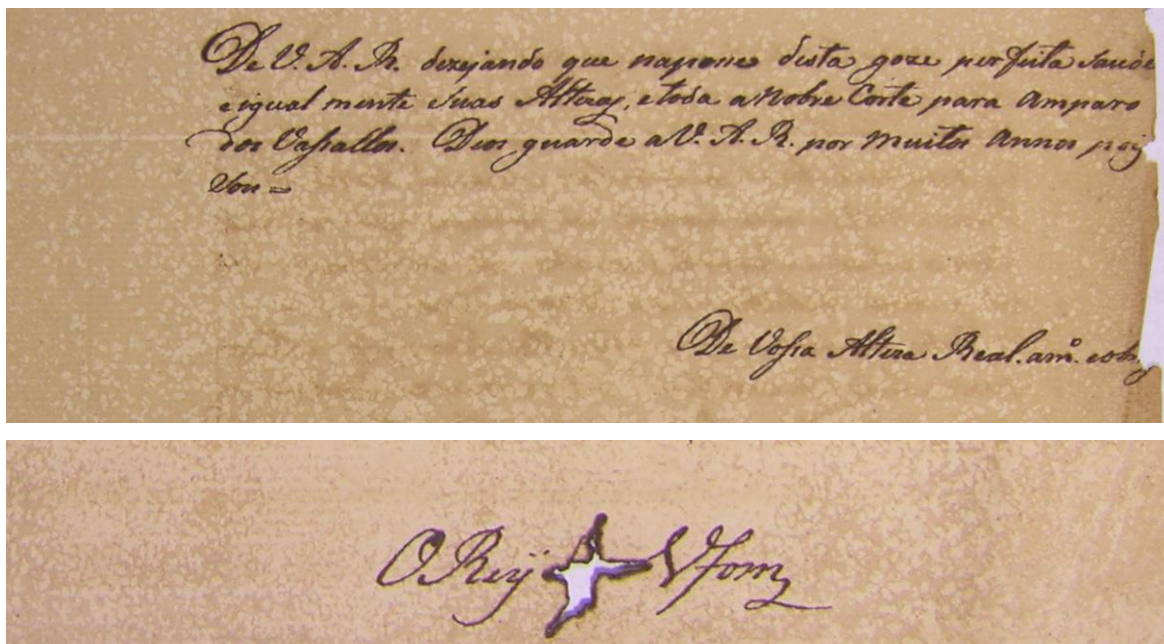 De V. A. R. dezejando que naponee desta goze perfeita saude
e igual mente Suas Altezas, e toda a Nobre Corte para amparo
dos Vassallos. Deos guarde a V. A. R. por muitos annos pois
Sou =
De Vossa Alteza Real. amº. e ob
O Reÿ